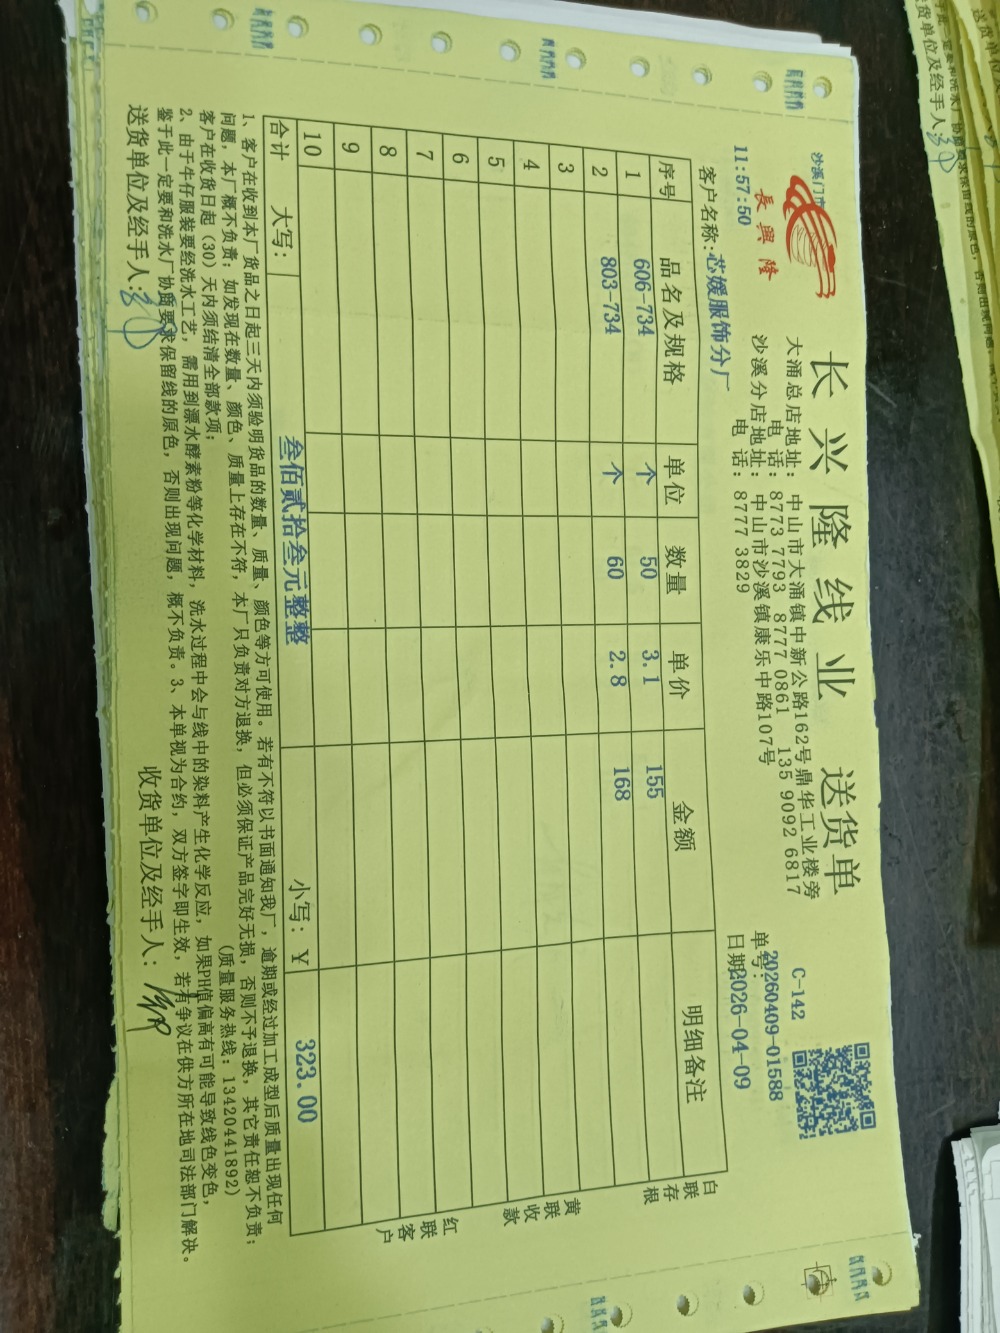 长兴隆线业 送货单
沙溪门市
長興隆
大涌总店地址：中山市大涌镇中新公路162号鼎华工业楼旁
电 话：8773 7793 8777 0861 135 9092 6817
沙溪分店地址：中山市沙溪镇康乐中路107号
电 话：8777 3829
C-142
单号：20260409-01588
日期2026-04-09
11:57:50
客户名称：芯媛服饰分厂
序号 品名及规格 单位 数量 单价 金额 明细备注
1 606-734 个 50 3.1 155
2 803-734 个 60 2.8 168
3
4
5
6
7
8
9
10
合计 大写： 叁佰贰拾叁元整整 小写：¥ 323.00
白联存根
黄联收款
红联客户
1、客户在收到本厂货品之日起三天内须验明货品的数量、质量、颜色等方可使用。若有不符以书面通知我厂，逾期或经过加工成型后质量出现任何
问题，本厂概不负责；如发现在数量、颜色、质量上存在不符，本厂只负责对方退换，但必须保证产品完好无损，否则不予退换，其它责任恕不负责；
客户在收货日起（30）天内须结清全部款项； （质量服务热线：13420441892）
2、由于牛仔服装要经洗水工艺，需用到漂水酵素粉等化学材料，洗水过程中会与线中的染料产生化学反应，如果PH值偏高有可能导致线色变色，
鉴于此一定要和洗水厂协商要求保留线的原色，否则出现问题，概不负责。3、本单视为合约，双方签字即生效，若有争议在供方所在地司法部门解决。
送货单位及经手人： 收货单位及经手人：
送货单位及经手人